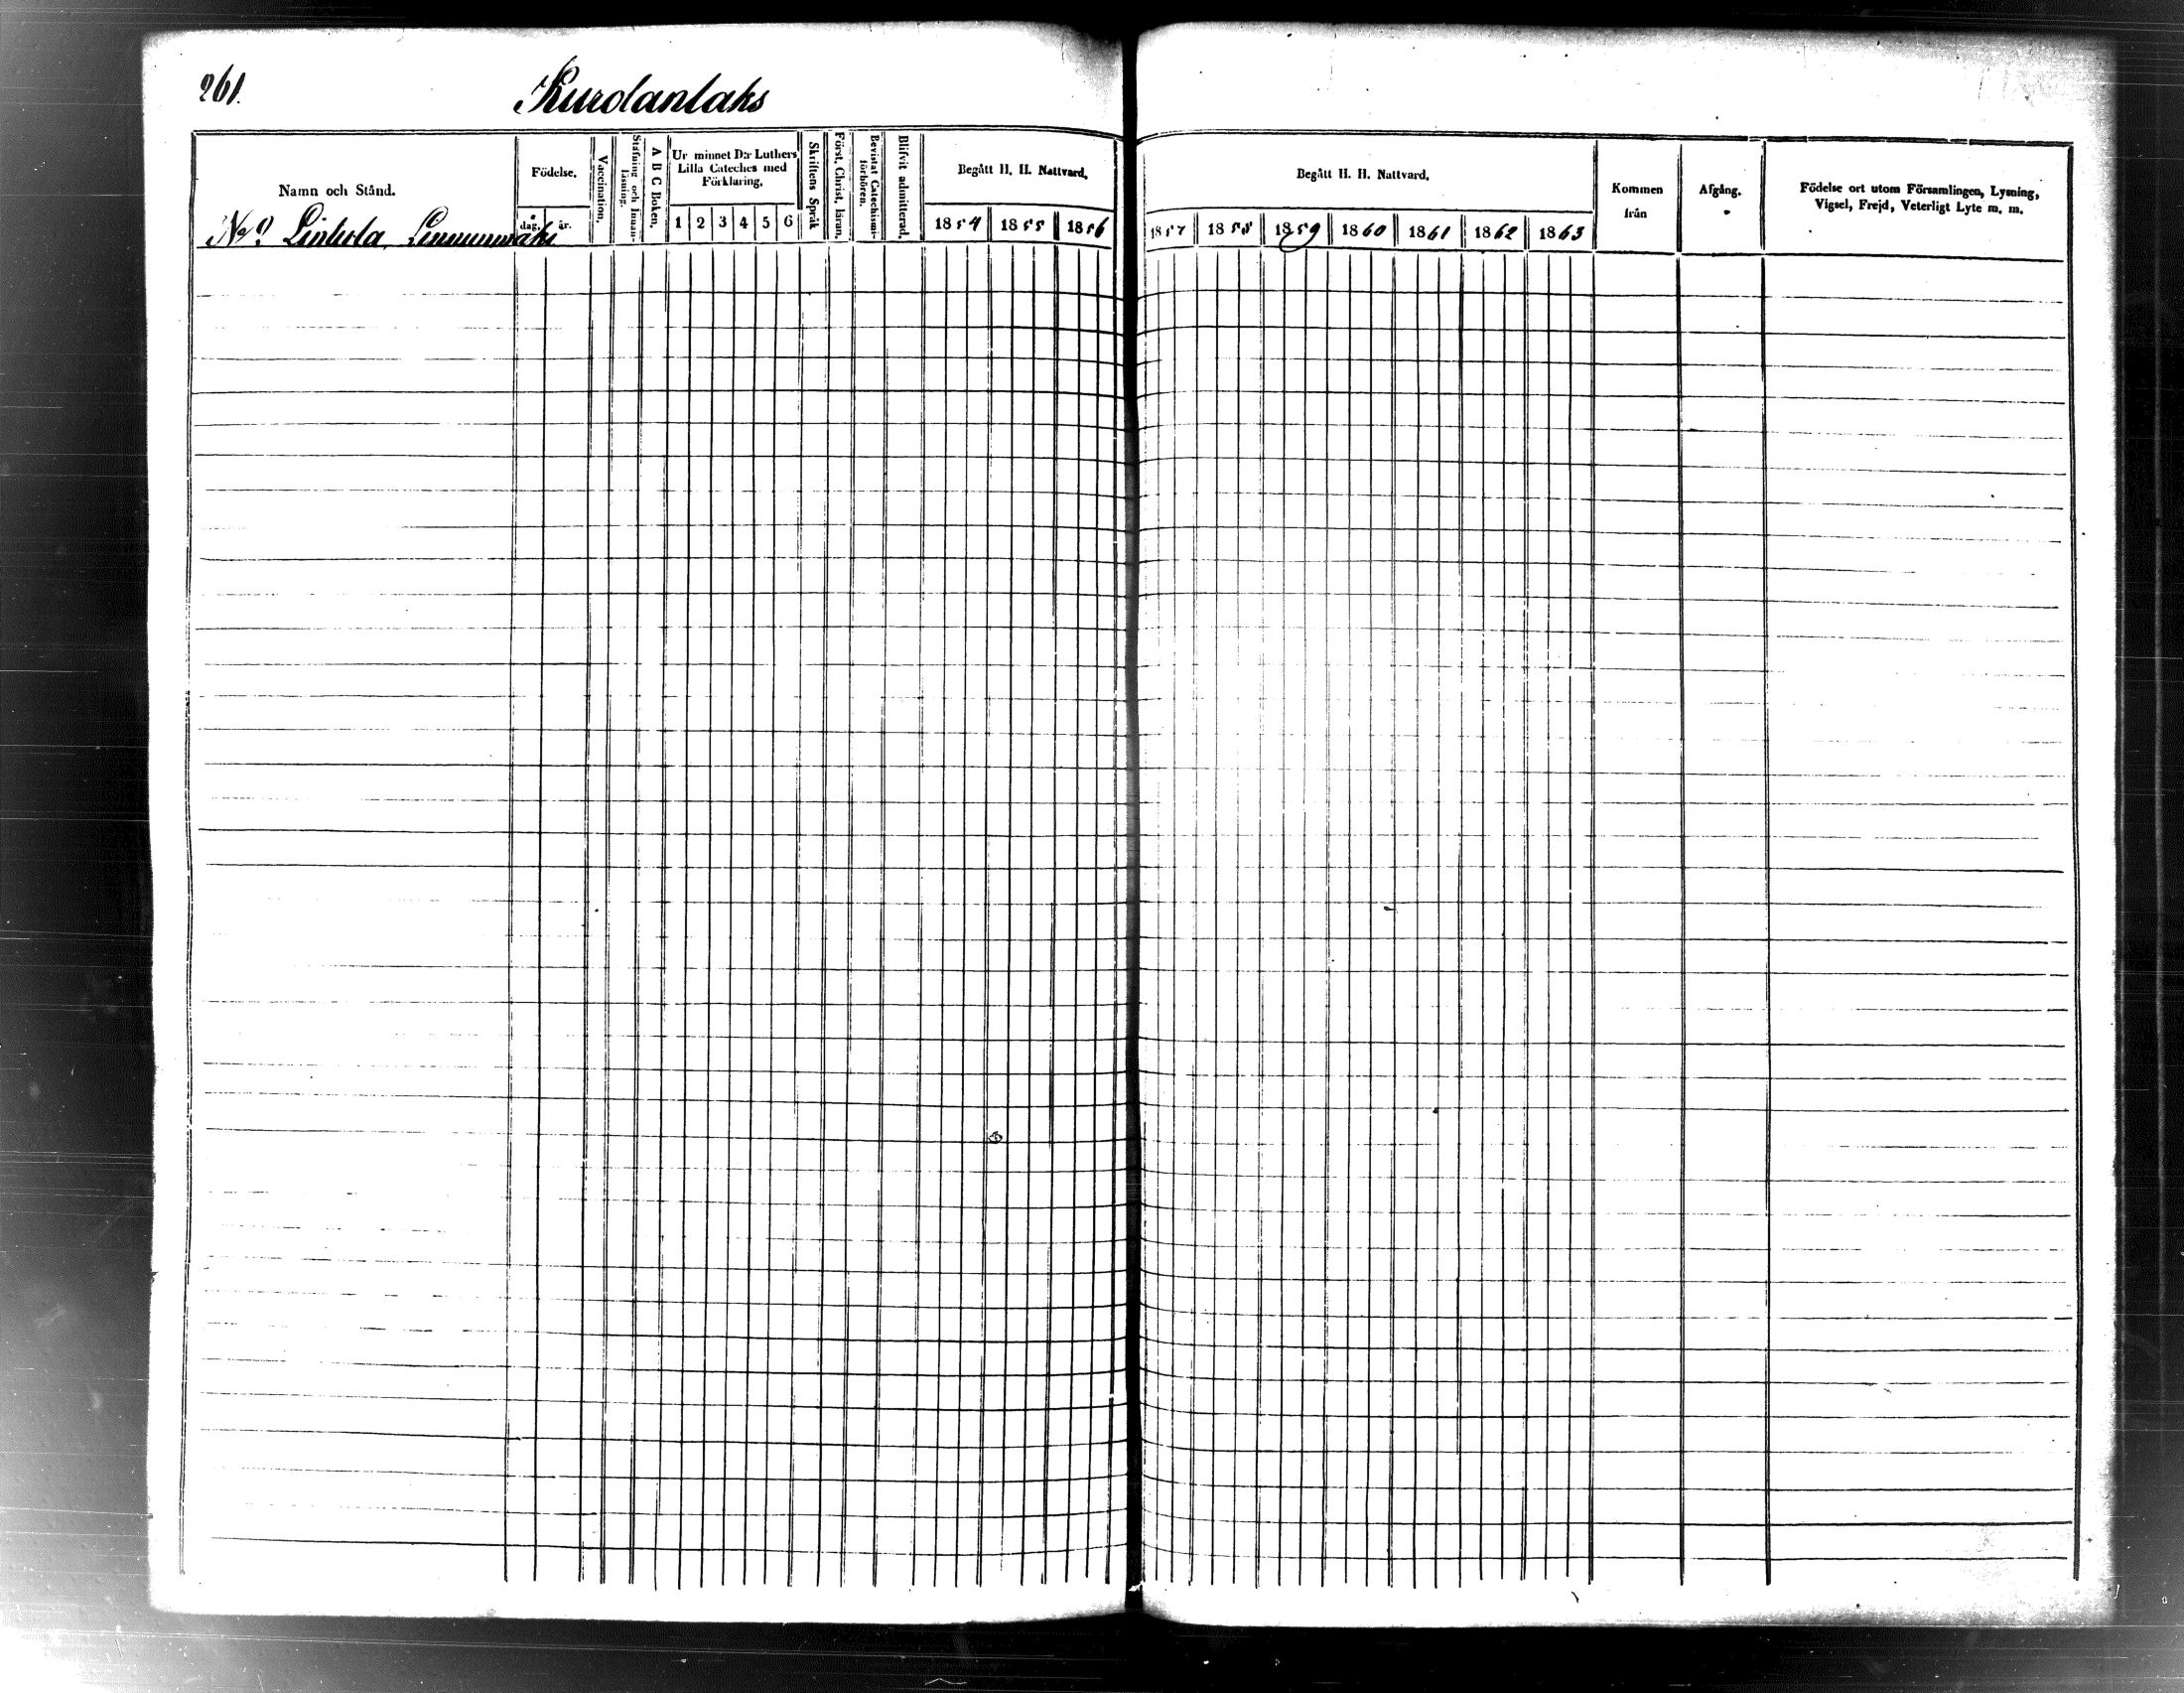 261.
Kurolanlaks
Namn och Stånd.
Födelse.
dag.
år.
Vaccination.
Stafning och Innan-
läsning.
A B C Boken.
Ur minnet D:r Luthers
Lilla Cateches med
Förklaring.
1 2 3 4 5 6
Skriftens Språk
Först. Christ. läran.
Bevistat Catechismi-
förhören.
Blifvit admitterad.
Begått H. H. Nattvard.
1854 1855 1856
Begått H. H. Nattvard.
1857 1858 1859 1860 1861 1862 1863
Kommen
från
Afgång.
Födelse ort utom Församlingen, Lysning,
Vigsel, Frejd, Veterligt Lyte m. m.
Linnunmäki